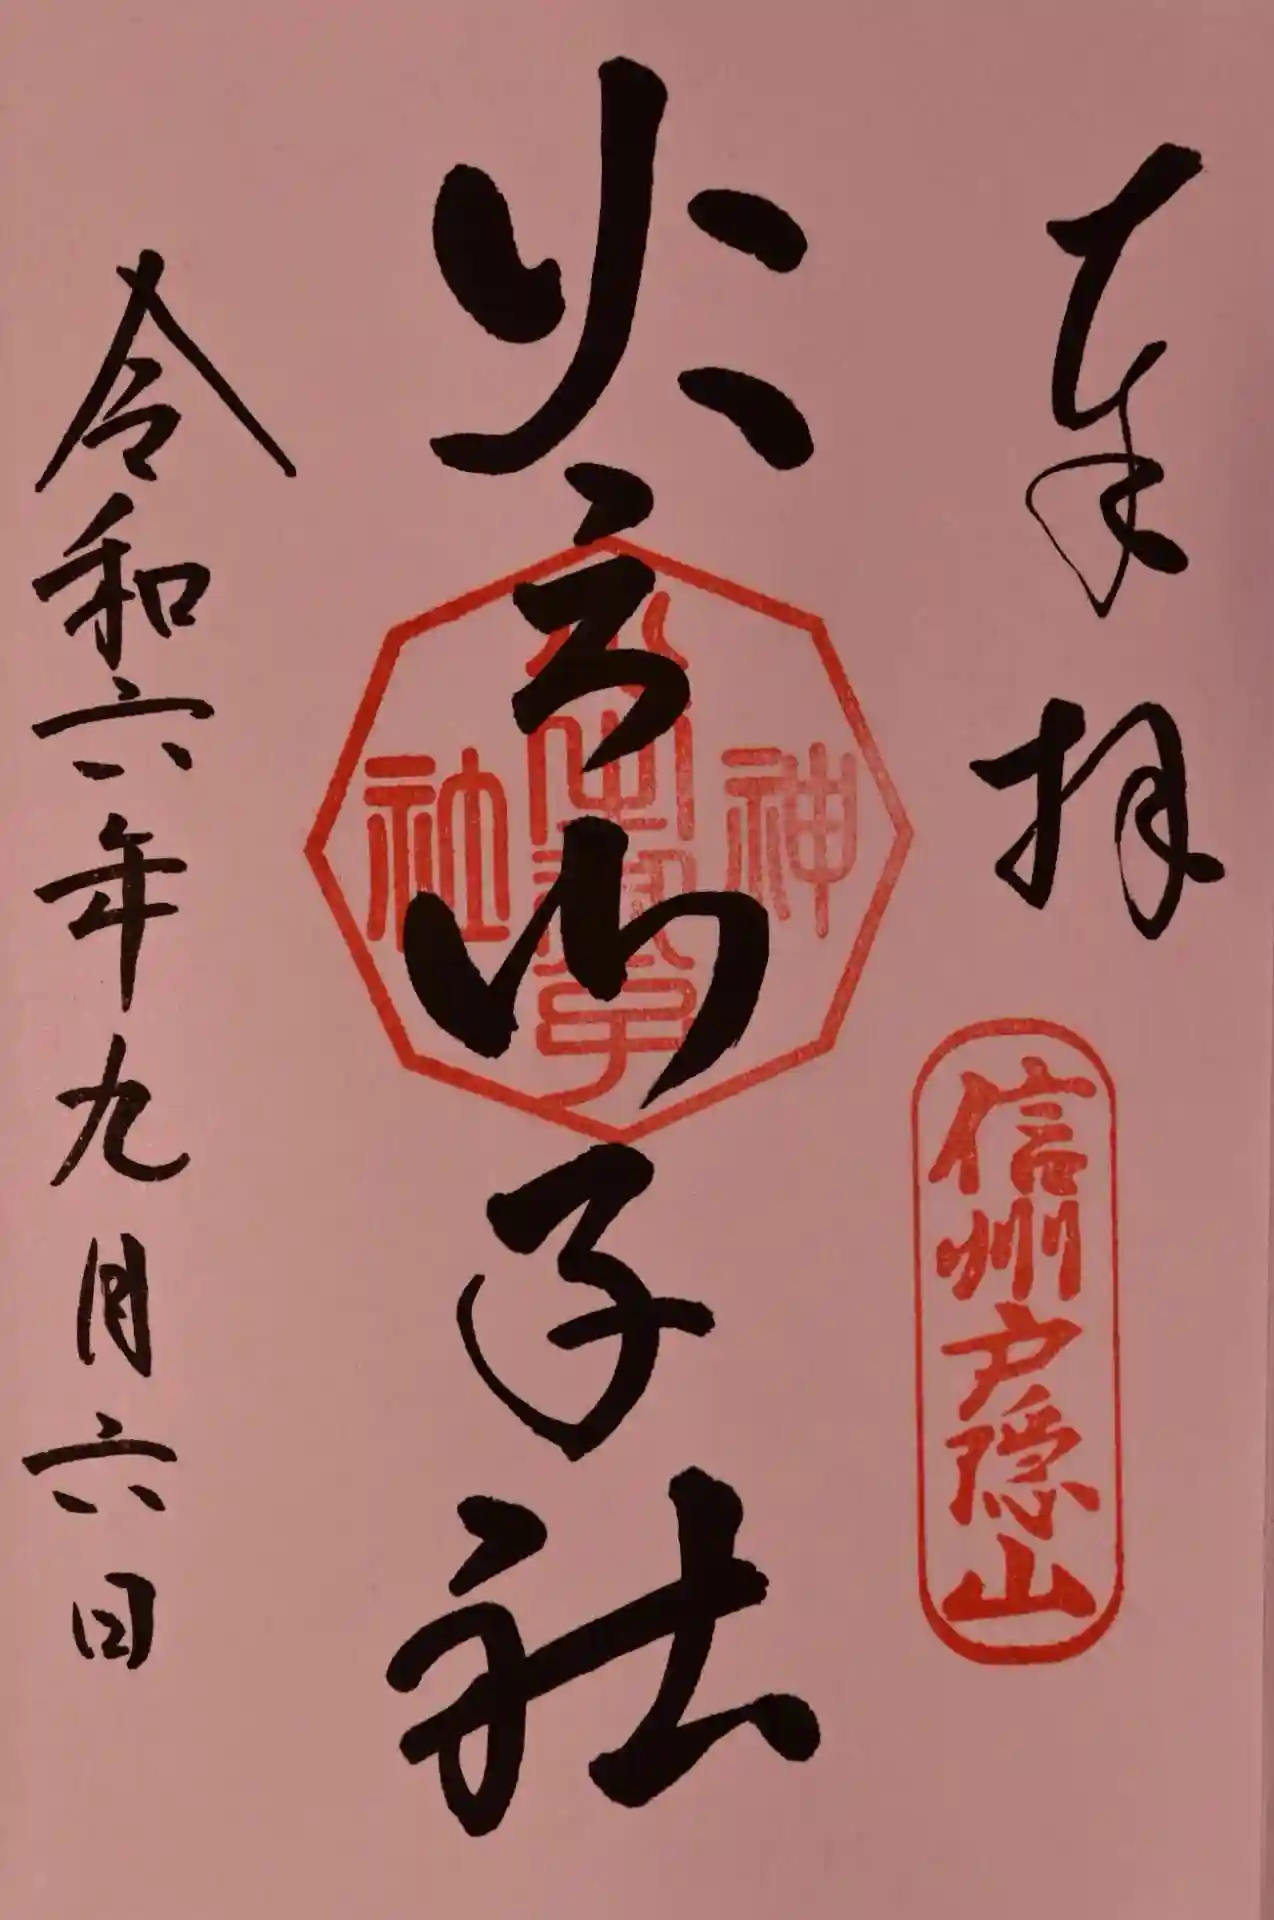 奉拝
信州戸隠山
火之御子社
火之御子
神社
令和六年九月六日